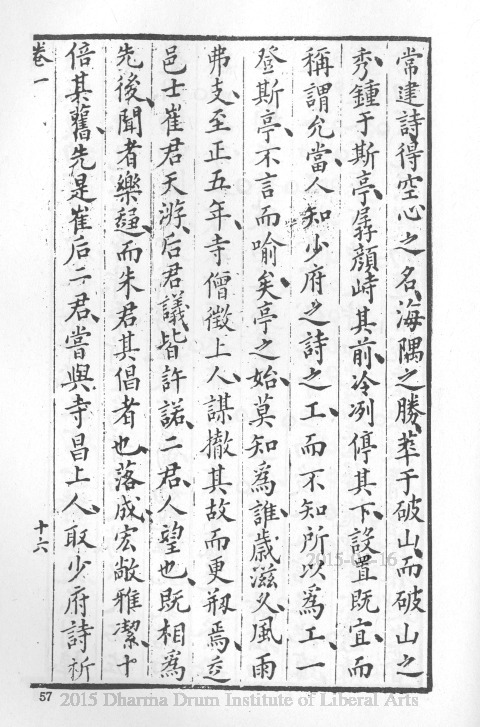 常建詩得空心之名海隅之勝萃于破山而破山之
秀鍾于斯亭孱顔峙其前冷冽停其下設置既宜而
稱謂允當人知少府之詩之工而不知所以爲工一
登斯亭不言而喻矣亭之始莫知爲誰歲滋久風雨
弗支至正五年寺僧徵上人謀撤其故而更剏焉
邑士崔君天游后君議皆許諾二君人望也既相爲
先後聞者樂趍而朱君其倡者也落成宏敞雅潔十
倍其舊先是崔后二君嘗與寺昌上人取少府詩析
卷一
十六
57
2015 Dharma Drum Institute of Liberal Arts